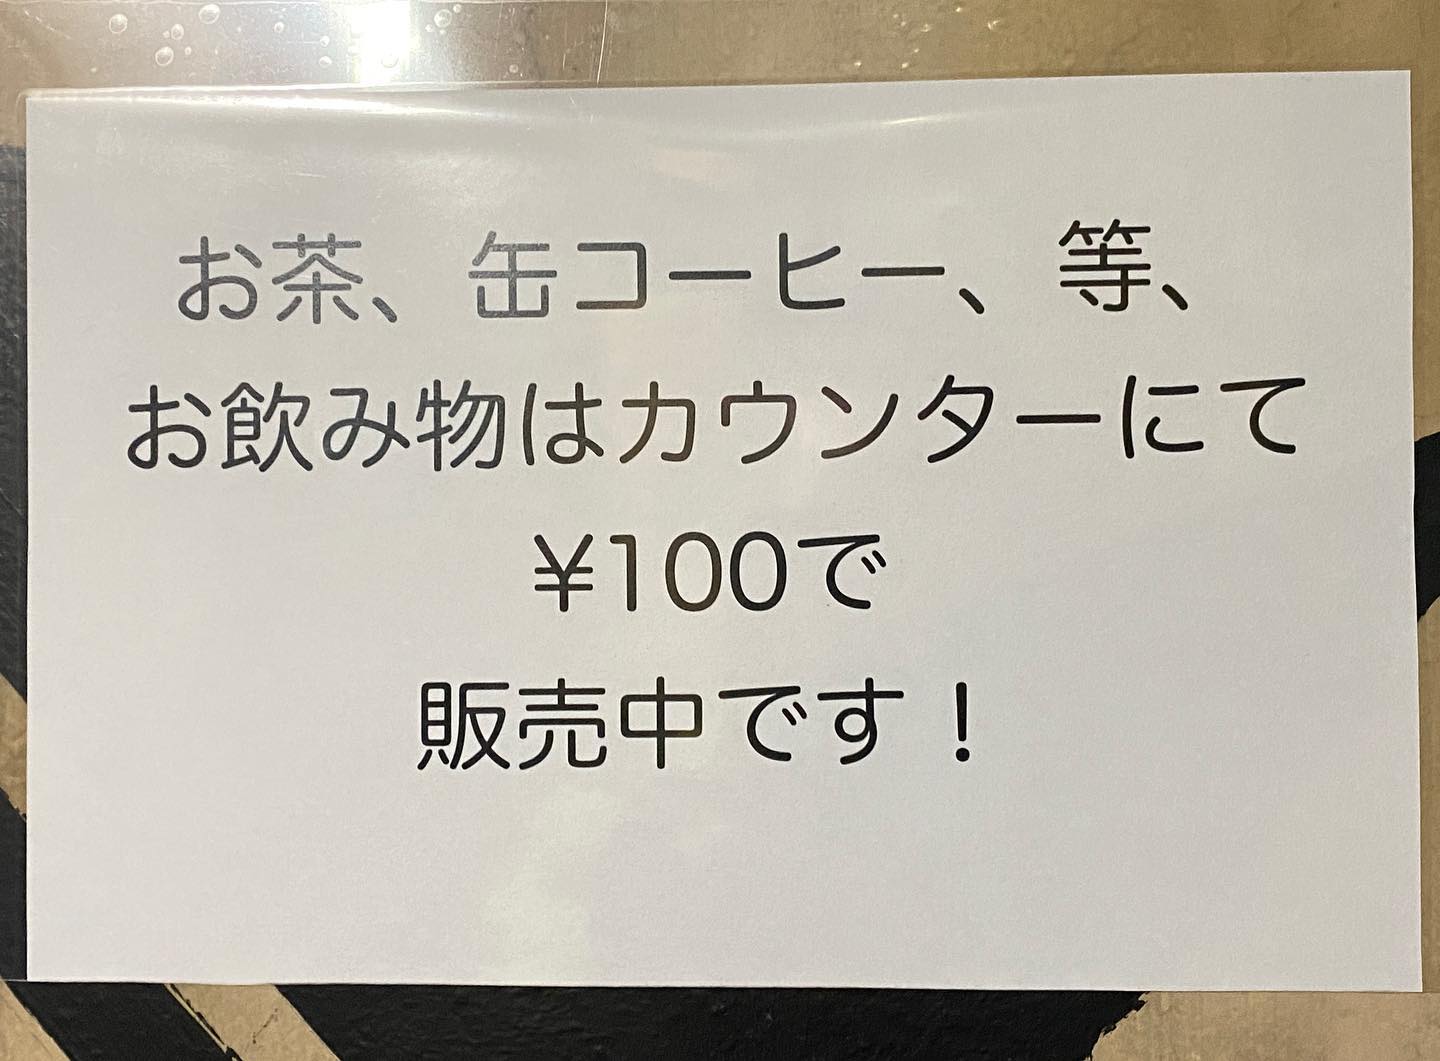 お茶、缶コーヒー、等、
お飲み物はカウンターにて
¥100で
販売中です！